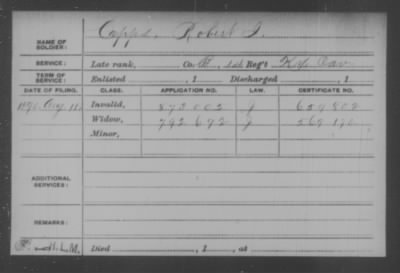 NAME OF SOLDIER: Capps, Robert J.
SERVICE: Late rank, Co. M, 1st Reg't Ky Cav
TERM OF SERVICE: Enlisted , 1 Discharged , 1
DATE OF FILING. CLASS. APPLICATION NO. LAW. CERTIFICATE NO.
1890 Aug 11 Invalid, 873002 J 659802
Widow, 792692 J 569170
Minor,
ADDITIONAL SERVICES:
REMARKS:
H.L.M. Died , 1 , at